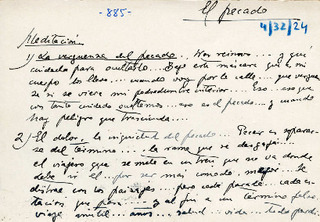 El pecado
-885-
4/32/24
Meditación
1) La vergüenza del pecado. Nos reímos... y qué
cuidado para ocultarlo... Bajo esta máscara que es mi
cuerpo lo llevo... cuando voy por la calle... que
si se viera mi podredumbre interior... Eso... eso que
con tanto cuidado ocultamos... eso es el pecado... y cuando
hay peligro que trascienda...
2) El dolor, la inquietud del pecado... Pecar es separar-
se del término... la rama que se desgaja...
el viajero que se mete en un tren que no va donde
debe ir él... por ser más cómodo, mejor... Se
distrae con los paisajes... pero cada parada... cada es-
tación que pasa... y al fin a un término feliz
viaje inútil... años... salud... vida... todo